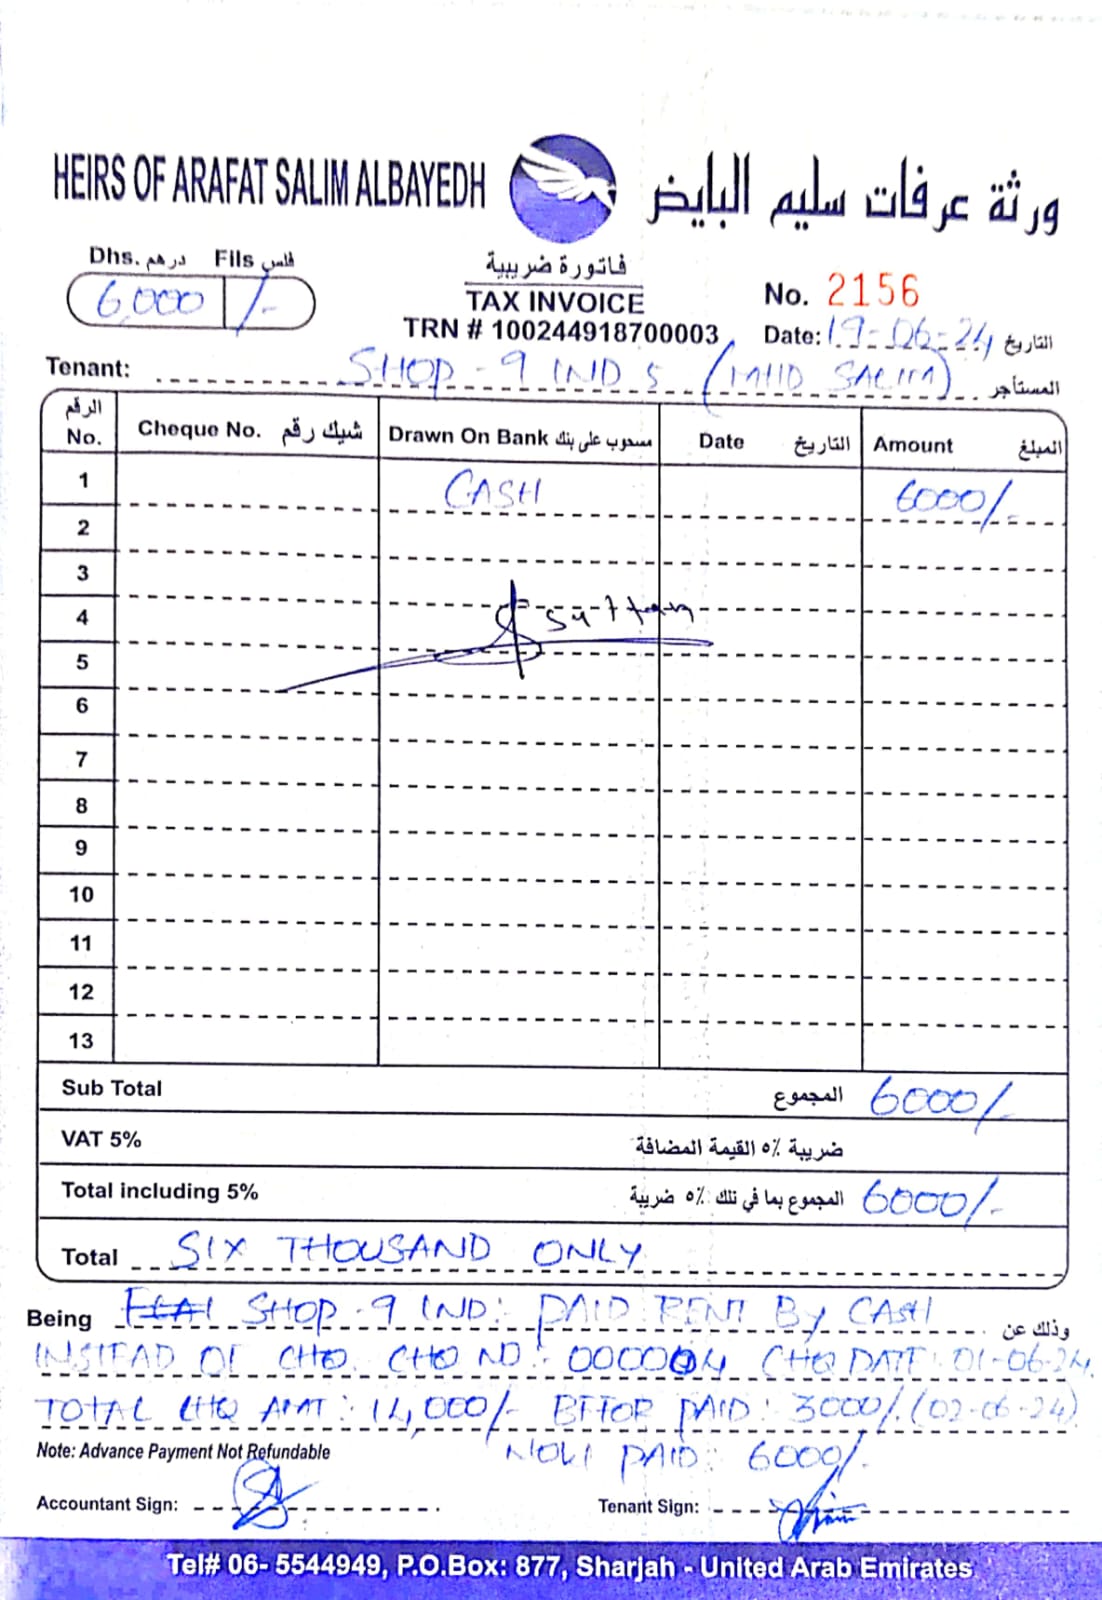 HEIRS OF ARAFAT SALIM ALBAYEDH ورثة عرفات سليم البايض
Dhs. درهم Fils فلس
6,000 /-
فاتورة ضريبية
TAX INVOICE
TRN # 100244918700003
No. 2156
Date: 19-06-24 التاريخ
Tenant: SHOP-9 IND 5 (MHD SALIM) المستأجر
الرقم No. Cheque No. شيك رقم Drawn On Bank مسحوب على بنك Date التاريخ Amount المبلغ
1 CASH 6000/-
2
3
4 Sultan
5
6
7
8
9
10
11
12
13
Sub Total المجموع 6000/-
VAT 5% ضريبة ٥٪ القيمة المضافة
Total including 5% المجموع بما في تلك ٥٪ ضريبة 6000/-
Total SIX THOUSAND ONLY
Being SHOP-9 IND: PAID RENT BY CASH وذلك عن
INSTEAD OF CHQ. CHQ NO: 000004 CHQ DATE: 01-06-24
TOTAL CHQ AMT: 14,000/- BEFOR PAID: 3000/. (02-06-24)
Note: Advance Payment Not Refundable NOW PAID: 6000/-
Accountant Sign: Tenant Sign:
Tel# 06- 5544949, P.O.Box: 877, Sharjah - United Arab Emirates